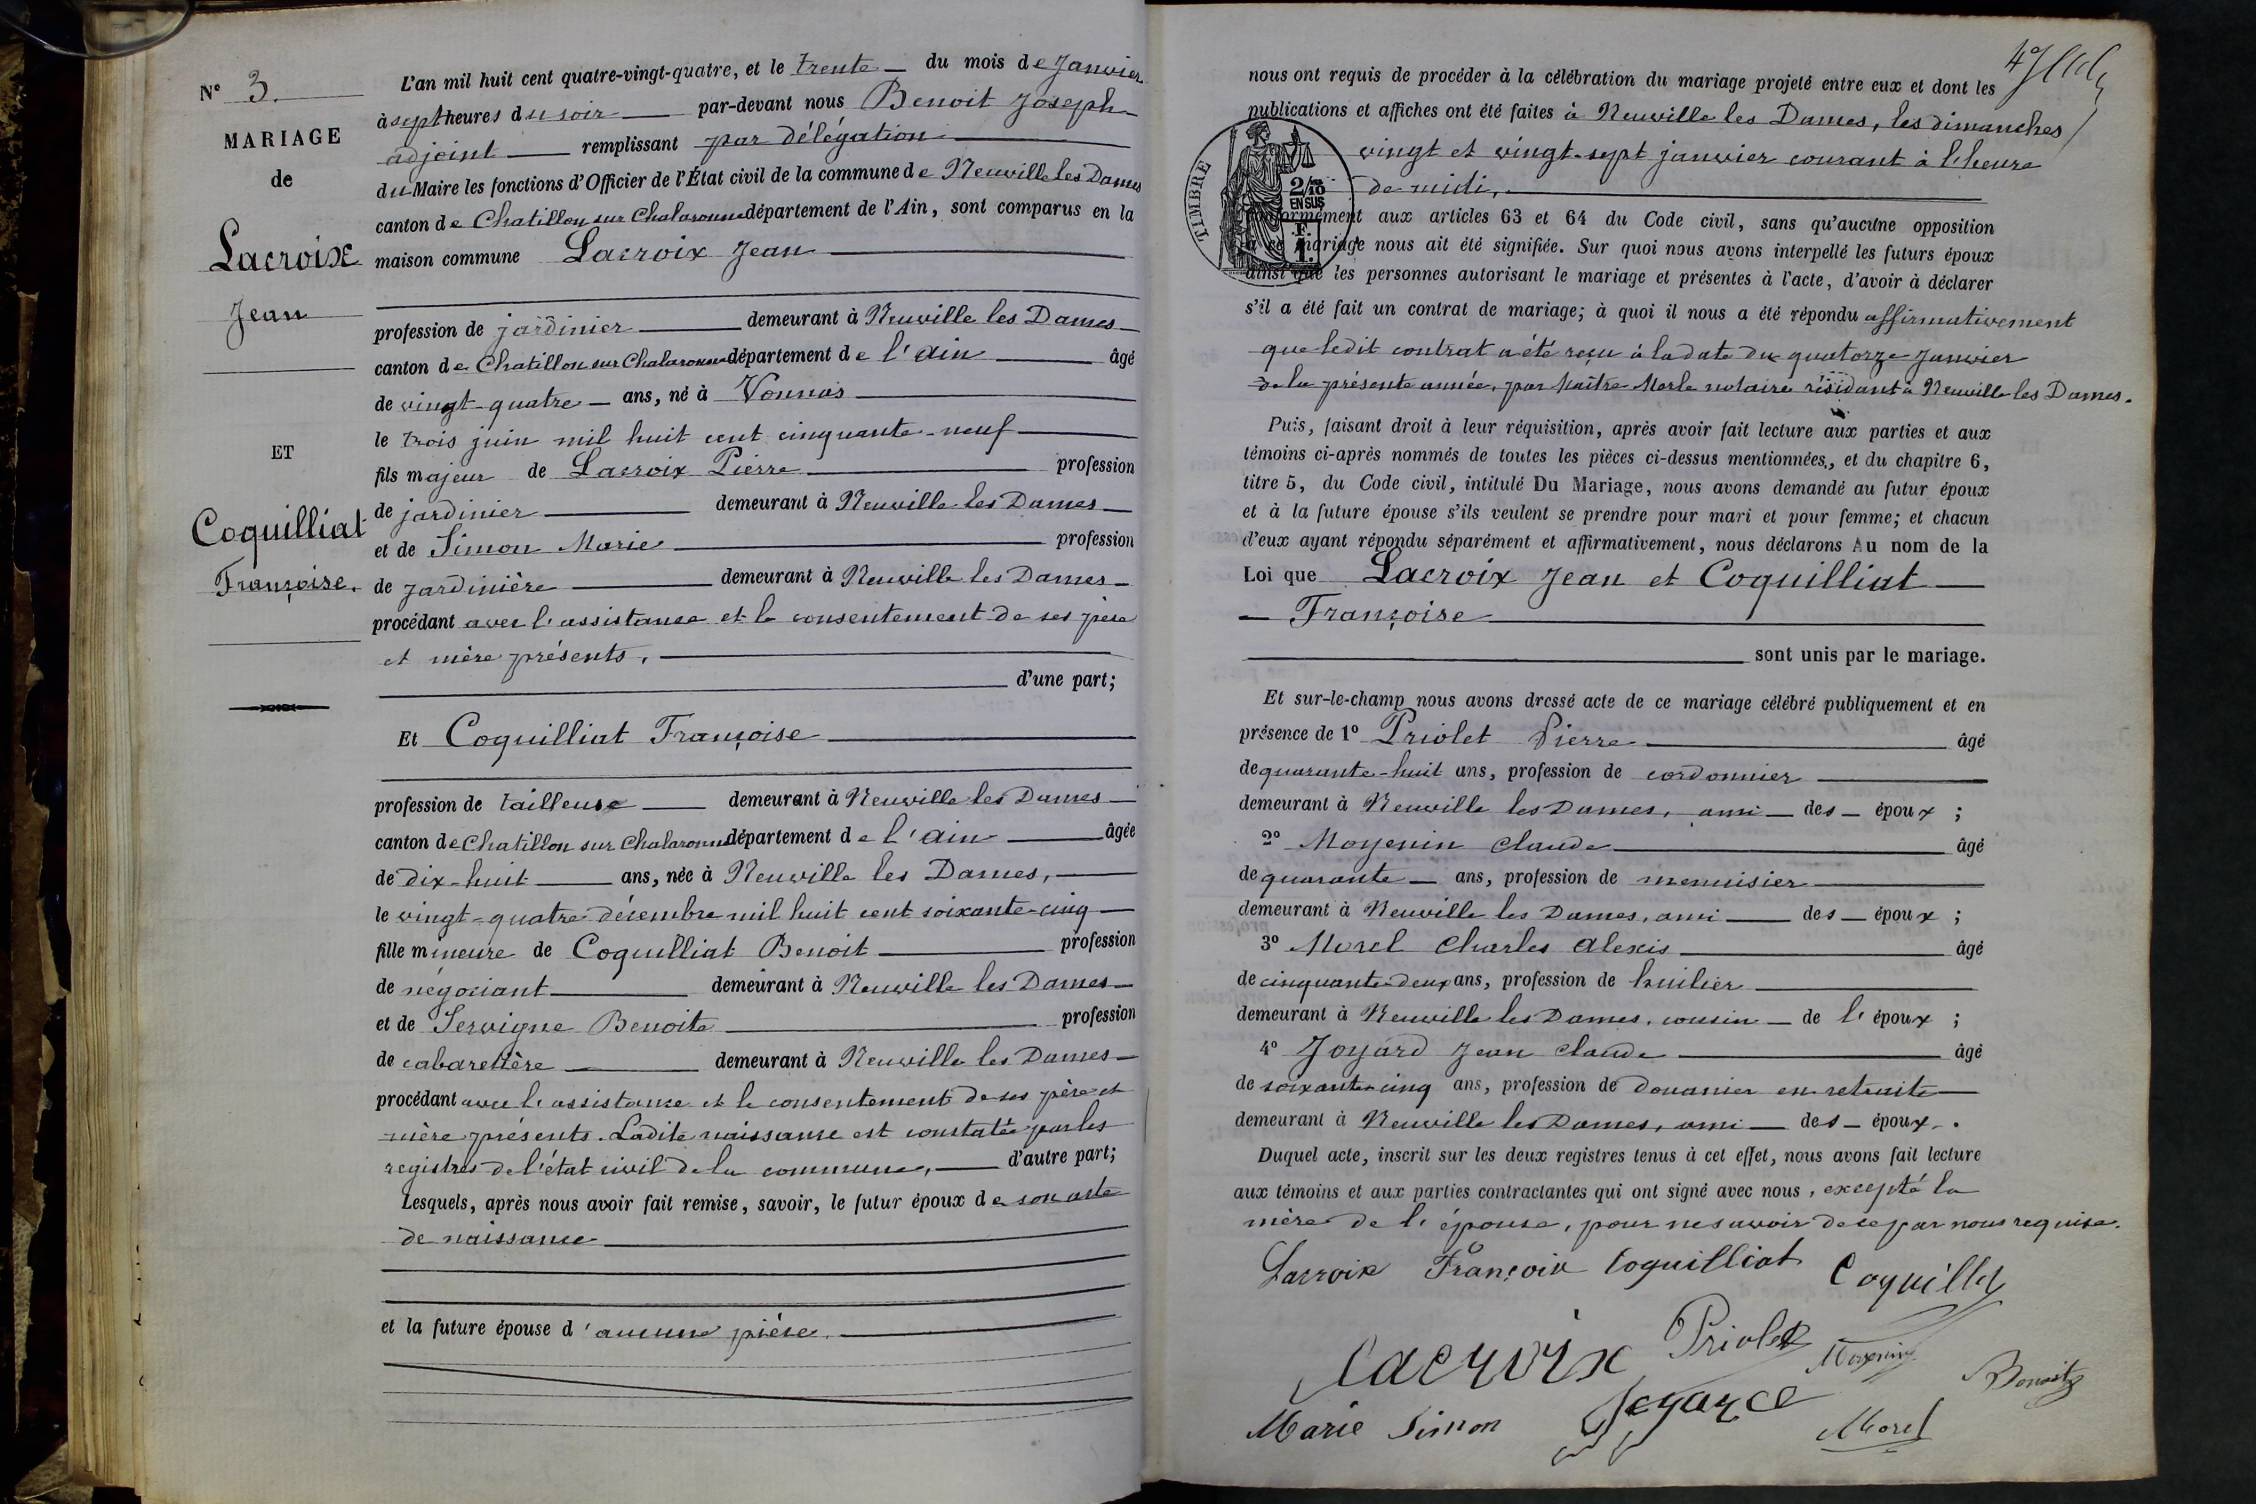 N° 3.
MARIAGE
de
Lacroix
Jean
ET
Coquilliat
Françoise.
L'an mil huit cent quatre-vingt-quatre, et le trente du mois de Janvier
à sept heures du soir par-devant nous Benoit Joseph
adjoint remplissant par délégation
du Maire les fonctions d'Officier de l'État civil de la commune de Neuville les Dames
canton de Chatillon sur Chalaronne département de l'Ain, sont comparus en la
maison commune Lacroix Jean
profession de jardinier demeurant à Neuville les Dames
canton de Chatillon sur Chalaronne département de l'Ain âgé
de vingt-quatre ans, né à Vonnas
le trois juin mil huit cent cinquante-neuf
fils majeur de Lacroix Pierre profession
de jardinier demeurant à Neuville les Dames
et de Simon Marie profession
de jardinière demeurant à Neuville les Dames
procédant avec l'assistance et le consentement de ses père
et mère présents,
d'une part;
Et Coquilliat Françoise
profession de tailleuse demeurant à Neuville les Dames
canton de Chatillon sur Chalaronne département de l'Ain âgée
de dix-huit ans, née à Neuville les Dames,
le vingt-quatre décembre mil huit cent soixante-cinq
fille mineure de Coquilliat Benoit profession
de négociant demeurant à Neuville les Dames
et de Servigne Benoite profession
de cabaretière demeurant à Neuville les Dames
procédant avec l'assistance et le consentement de ses père et
mère présents. Ladite naissance est constatée par les
registres de l'état civil de la commune, d'autre part;
Lesquels, après nous avoir fait remise, savoir, le futur époux de son acte
de naissance
et la future épouse d'aucune pièce.
nous ont requis de procéder à la célébration du mariage projeté entre eux et dont les
publications et affiches ont été faites à Neuville les Dames, les dimanches
vingt et vingt-sept janvier courant à l'heure
de midi,
TIMBRE
2/10
EN SUS
F.
1.
conformément aux articles 63 et 64 du Code civil, sans qu'aucune opposition
à ce mariage nous ait été signifiée. Sur quoi nous avons interpellé les futurs époux
ainsi que les personnes autorisant le mariage et présentes à l'acte, d'avoir à déclarer
s'il a été fait un contrat de mariage; à quoi il nous a été répondu affirmativement
que ledit contrat a été reçu à la date du quatorze Janvier
de la présente année, par Maître Morle notaire résidant à Neuville les Dames.
Puis, faisant droit à leur réquisition, après avoir fait lecture aux parties et aux
témoins ci-après nommés de toutes les pièces ci-dessus mentionnées, et du chapitre 6,
titre 5, du Code civil, intitulé Du Mariage, nous avons demandé au futur époux
et à la future épouse s'ils veulent se prendre pour mari et pour femme; et chacun
d'eux ayant répondu séparément et affirmativement, nous déclarons Au nom de la
Loi que Lacroix Jean et Coquilliat
Françoise
sont unis par le mariage.
Et sur-le-champ nous avons dressé acte de ce mariage célébré publiquement et en
présence de 1° Priolet Pierre âgé
de quarante-huit ans, profession de cordonnier
demeurant à Neuville les Dames, ami des époux ;
2° Moyenin Claude âgé
de quarante ans, profession de menuisier
demeurant à Neuville les Dames, ami des époux ;
3° Morel Charles Alexis âgé
de cinquante-deux ans, profession de huilier
demeurant à Neuville les Dames, cousin de l'époux ;
4° Joyard Jean Claude âgé
de soixante-cinq ans, profession de douanier en retraite
demeurant à Neuville les Dames, ami des époux.
Duquel acte, inscrit sur les deux registres tenus à cet effet, nous avons fait lecture
aux témoins et aux parties contractantes qui ont signé avec nous, excepté la
mère de l'épouse, pour ne savoir de ce par nous requise.
Lacroix Françoise Coquilliat Coquilliat
Lacroix Priolet Moyenin Benoit
Marie Simon Joyard Morel